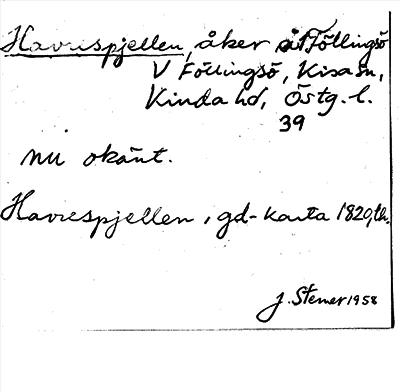 Havrespjellen, åker i Föllingsö
V Föllingsö, Kisa sn,
Kinda hd, Östg. l.
39
nu okänt.
Havrespjellen, gd-karta 1820,
J. Stemer 1958